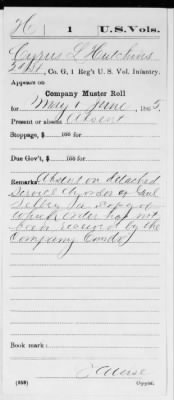 H | 1 | U.S. Vols.
Cyrus L Hutchins
2d Lt., Co. G, 1 Reg't U. S. Vol. Infantry.
Appears on
Company Muster Roll
for May & June, 1865.
Present or absent Absent
Stoppage, $ 100 for
Due Gov't, $ 100 for
Remarks: Absent on detached
service by order of Genl
a copy of
which order has not
been received by the
Company Comdr
Book mark:
(858) Copyist.